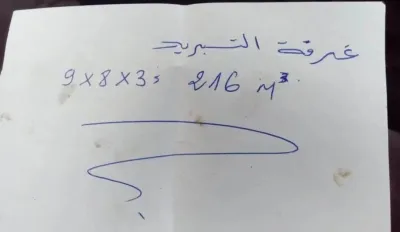 غرفة التبريد
9x8x3= 216 м³